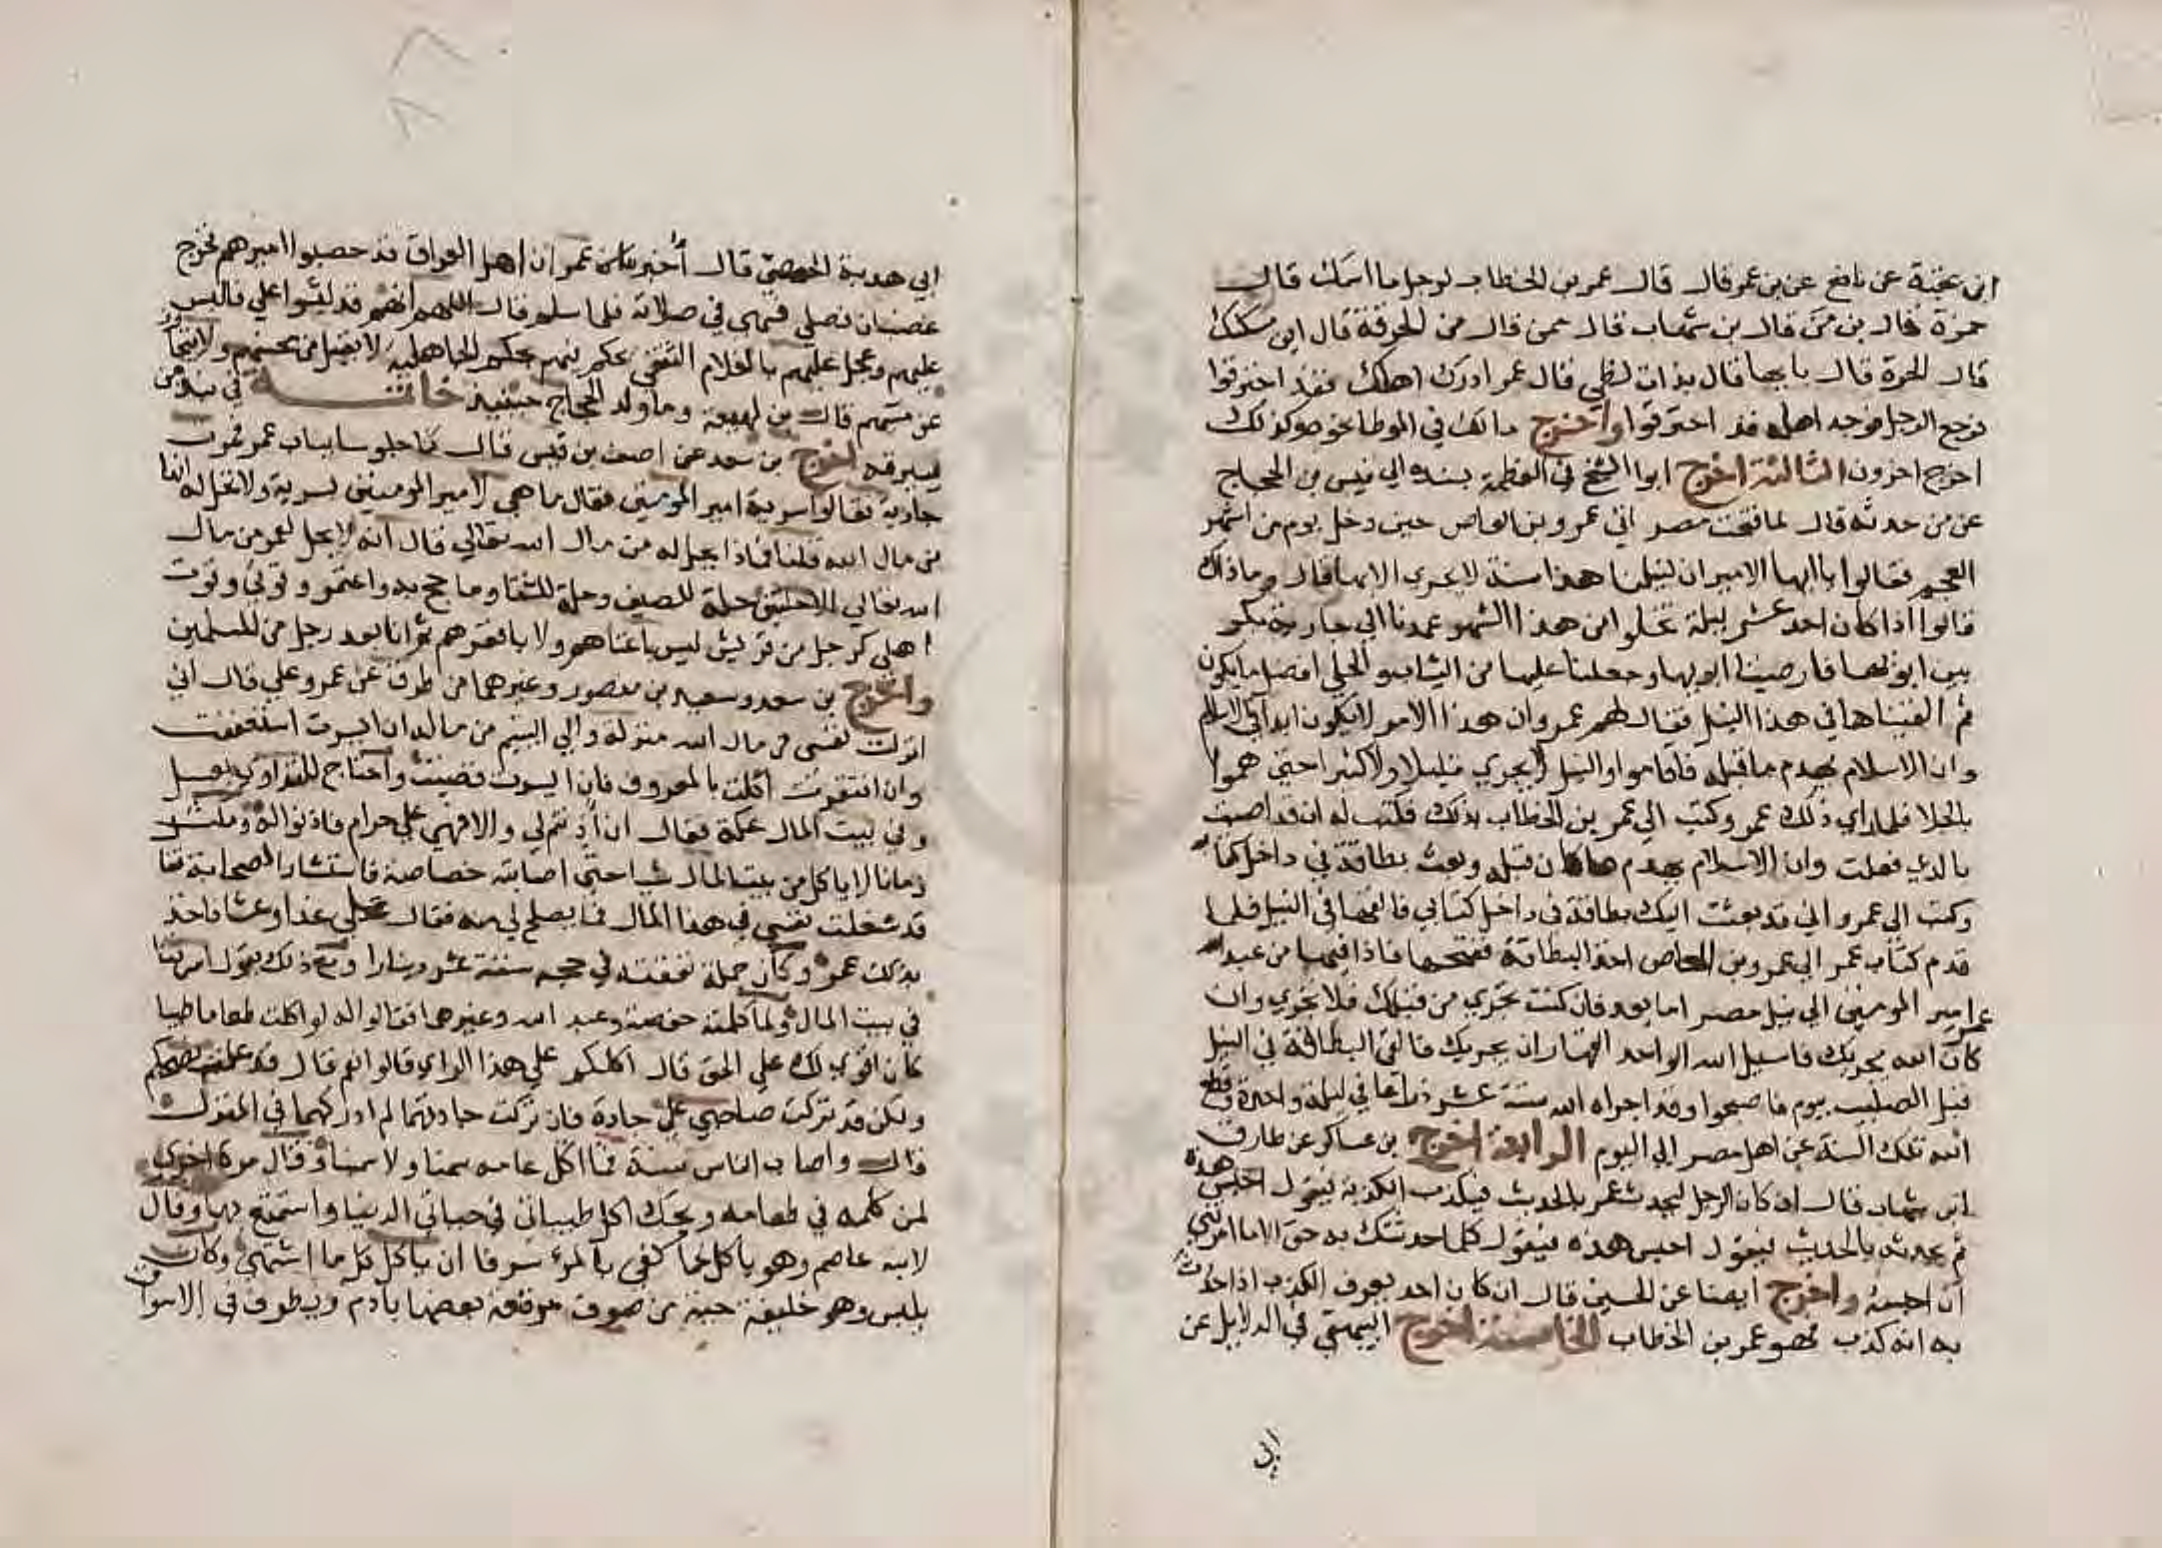 ابن عقبة عن نافع عن بن عمر قال قال عمر بن الخطاب لرجل ما اسمك قال
جمرة قال بن من قال بن شهاب قال ممن قال من الحرقة قال اين مسكنك
قال الحرة قال بايها قال بذات لظي فقال عمر ادرك اهلك فقد احترقوا
فرجع الرجل فوجد اهله قد احترقوا واخرج مالك في الموطا نحوه وكذلك
اخرج اخرون الثالثة اخرج ابوا الشيخ في العظمة بسنده الي قيس بن الحجاج
عن من حدثه قال لما فتحت مصر اتي عمرو بن العاص حين دخل يوم من اشهر
العجم فقالوا يا ايها الامير ان لنيلنا هذا سنة لا يجري الا بها قال وما ذاك
قالوا اذا كان احد عشر ليلة تخلوا من هذا الشهر عمدنا الي جارية بكر
بين ابويها فارضينا ابويها وجعلنا عليها من الثياب والحلي افضل ما يكون
ثم القيناها في هذا النيل فقال لهم عمر وان هذا الامر لا يكون ابدا في الاسلام
وان الاسلام يهدم ما قبله فاقاموا والنيل لا يجري قليلا ولا كثيرا حتي هموا
بالجلا فلما راي ذلك عمر وكتب الي عمر بن الخطاب بذلك فكتب له ان قد اصبت
بالذي فعلت وان الاسلام يهدم ما كان قبله وبعث بطاقة في داخل كتابه
وكتب الي عمرو اني قد بعثت اليك بطاقة في داخل كتابي فالقها في النيل فلما
قدم كتاب عمر الي عمرو بن العاص اخذ البطاقة ففتحها فاذا فيها من عبد الله
عمر امير المومنين الي نيل مصر اما بعد فان كنت تجري من قبلك فلا تجري وان
كان الله يجريك فاسيل الله الواحد القهار ان يجريك فالقي البطاقة في النيل
قبل الصليب بيوم فاصبحوا وقد اجراه الله ستة عشر ذراعا في ليلة واحدة وقطع
الله تلك السنة عن اهل مصر الي اليوم الرابعة اخرج بن عساكر عن طارق
ابن شهاب قال ان كان الرجل ليحدث عمر بالحديث فيكذب الكذبة فيقول احبس هذه
ثم يحدثه بالحديث فيقول احبس هذه فيقول كلما حدثتك به حق الا ما امرتني
ان احبسه واخرج ايضا عن الحسن قال ان كان احد يعرف الكذب اذا حدث
به انه كذب فهو عمر بن الخطاب الخامسة اخرج البيهقي في الدلايل عن
ابي
ابي هدبة الحمصي قال أخبر عمر ان اهل العراق قد حصبوا اميرهم فخرج
غضبان فصلي فسهي في صلاته فلما سلم قال اللهم انهم قد لبسوا علي فالبس
عليهم وعجل عليهم بالغلام الثقفي يحكم فيهم بحكم الجاهلية لا يقبل من محسنهم ولا يتجاوز
عن مسيهم قال بن لهيعة وما ولد الحجاج حينيذ خاتمة في نبذ من
سيرته اخرج بن سعد عن احنف بن قيس قال كنا جلوسا بباب عمر فمرت
جارية فقالوا سرية امير المومنين فقال ما هي لامير المومنين بسرية ولا تحل له انها
من مال الله قلنا فماذا يحل له من مال الله تعالي قال انه لا يحل لعمر من مال
الله تعالي الا حلتين حلة للصيف وحلة للشتا وما حج به واعتمر وقوتي وقوت
اهلي كرجل من قريش ليس باغناهم ولا بافقرهم ثم انا بعد رجل من المسلمين
واخرج بن سعد وسعيد بن منصور وغيرهما من طرق عن عمر وعلي قال اني
انزلت نفسي من مال الله منزلة والي اليتيم من ماله ان ايسرت استعففت
وان افتقرت اكلت بالمعروف فان ايسرت قضيت واحتاج للتداوي بعسل
وفي بيت المال عكة فقال ان أذنتم لي والا فهي علي حرام فاذنوا له ومكث
زمانا لا ياكل من بيت المال شيا حتي اصابته خصاصة فاستشار الصحابة فقال
قد شغلت نفسي في هذا المال فما يصلح لي منه فقال علي غدا وعشا فاخذ
بذلك عمر وكان جملة نفقته في حجه ستة عشر دينارا ومع ذلك يقول اسرفنا
في بيت المال ولما كلمته حفصة وعبد الله وغيرهما فقالوا له لو اكلت طعاما طيبا
كان اقوي لك علي الحق قال اكلكم علي هذا الراي قالوا نعم قال قد علمت نصحكم
ولكن قد تركت صاحبي علي جادة فان تركت جادتهما لم ادركهما في المنزل
قال واصاب الناس سنة فما اكل عامه سمنا ولا سمينا وقال مرة اخري
لمن كلمه في طعامه ويحك اكل طيباتي في حياتي الدنيا واستمتع بها وقال
لابنه عاصم وهو ياكل لحما كفي بالمرء سرفا ان ياكل كل ما اشتهي وكان
يلبس وهو خليفة جبة من صوف مرقعة بعضها بادم ويطوف في الاسواق